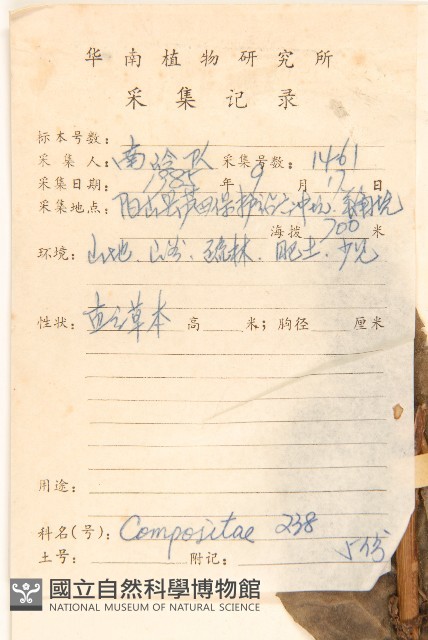 华南植物研究所
采集记录
标本号数：
采集人：南岭队 采集号数：1461
采集日期： 1985 年 9 月 17 日
采集地点：阳山县
海拔 700 米
环境：山地、山谷、疏林、肥土、少见
性状：直立草本 高 米；胸径 厘米
用途：
科名(号)：Compositae 238
土号： 附记： 5份
國立自然科學博物館
NATIONAL MUSEUM OF NATURAL SCIENCE